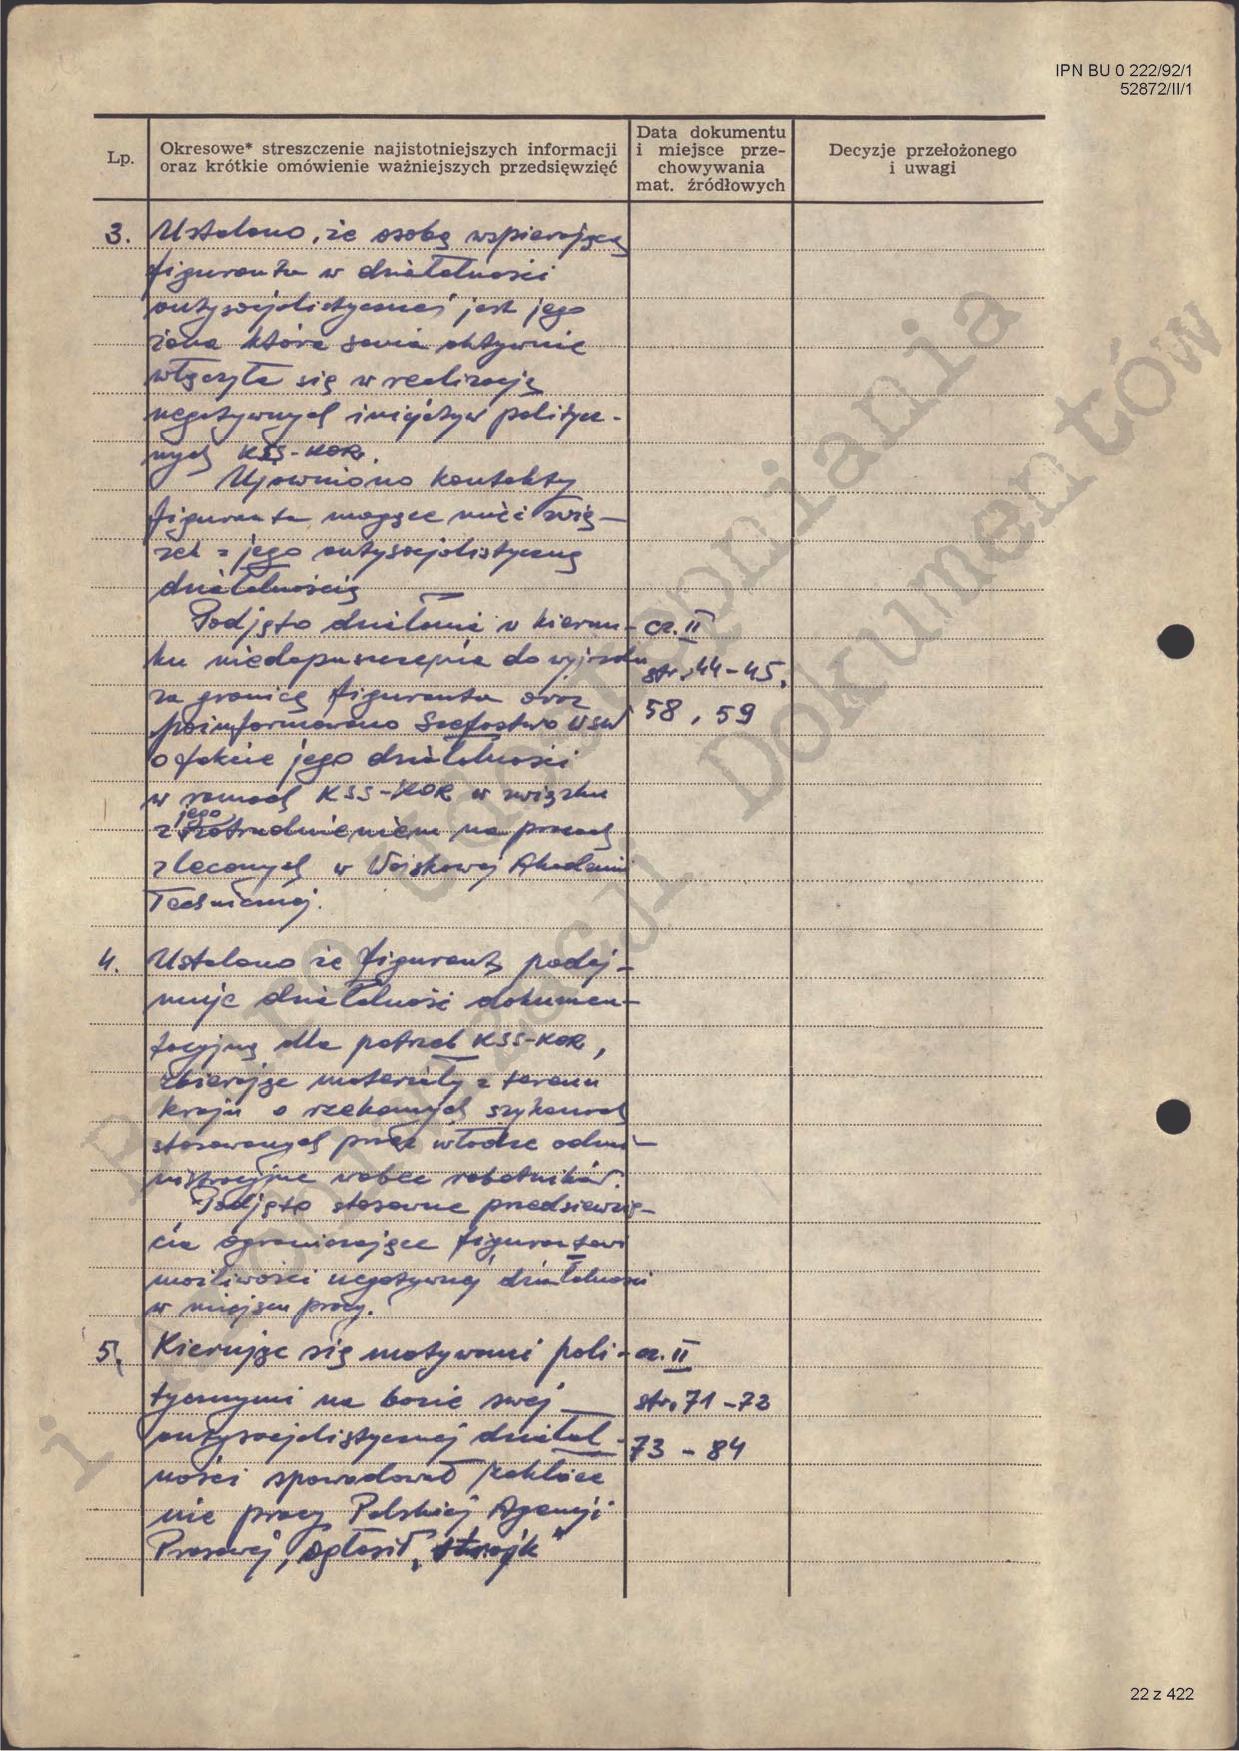 IPN BU 0 222/92/1
52872/II/1
Lp.
Okresowe* streszczenie najistotniejszych informacji
oraz krótkie omówienie ważniejszych przedsięwzięć
Data dokumentu
i miejsce prze-
chowywania
mat. źródłowych
Decyzje przełożonego
i uwagi
3. Ustalono, że osobą wspierającą
figuranta w działalności
antysocjalistycznej jest jego
żona która sama aktywnie
włączyła się w realizację
negatywnych inicjatyw politycz-
nych KSS-KOR.
Ujawniono kontakty
figuranta mogące mieć zwią-
zek z jego antysocjalistyczną
działalnością
Podjęto działania w kierun- cz. II
ku niedopuszczenia do wyjazdu str. 44-45,
za granicę figuranta oraz
poinformowano Szefostwo WSW 58, 59
o fakcie jego działalności
w ramach KSS-KOR w związku
z jego zatrudnieniem na pracach
zleconych w Wojskowej Akademii
Technicznej.
4. Ustalono że figurant podej-
muje działalność dokumen-
tacyjną dla potrzeb KSS-KOR,
zbierając materiały z terenu
kraju o rzekomych szykanach
stosowanych przez władze admi-
nistracyjne wobec robotników.
Podjęto stosowne przedsięwzię-
cia ograniczające figurantowi
możliwości negatywnej działalności
w miejscu pracy.
5. Kierując się motywami poli- cz. II
tycznymi na bazie swej str. 71-72
antysocjalistycznej działal- 73-84
ności spowodował zakłóce
nie pracy Polskiej Agencji
Prasowej, ogłosił "strajk"
Biuro Udostępniania
i Archiwizacji Dokumentów
22 z 422